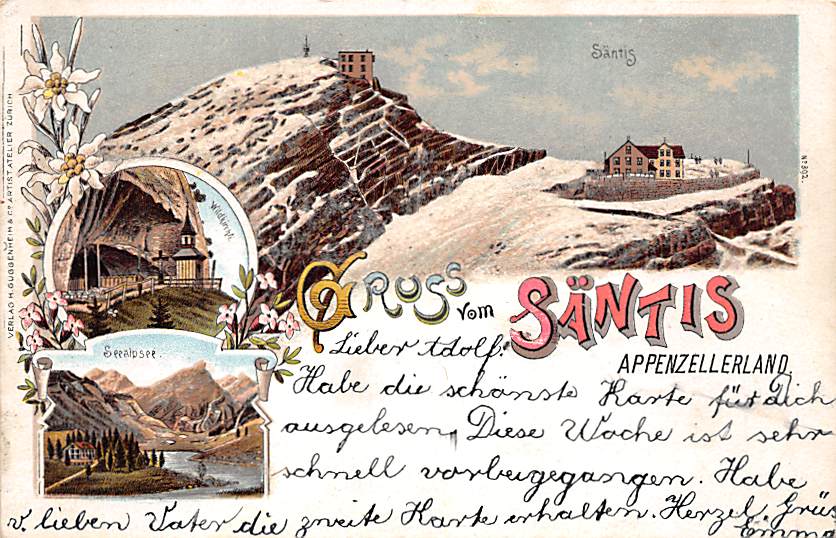 Säntis
No 302.
VERLAG H. GUGGENHEIM & Co ARTIST. ATELIER ZÜRICH
Wildkirchli.
GRUSS vom SÄNTIS
APPENZELLERLAND.
Seealpsee.
Lieber Adolf!
Habe die schönste Karte für dich
ausgelesen. Diese Woche ist sehr
schnell vorbeigegangen. Habe
v. lieben Vater die zweite Karte erhalten. Herzel. Grüs
Emma